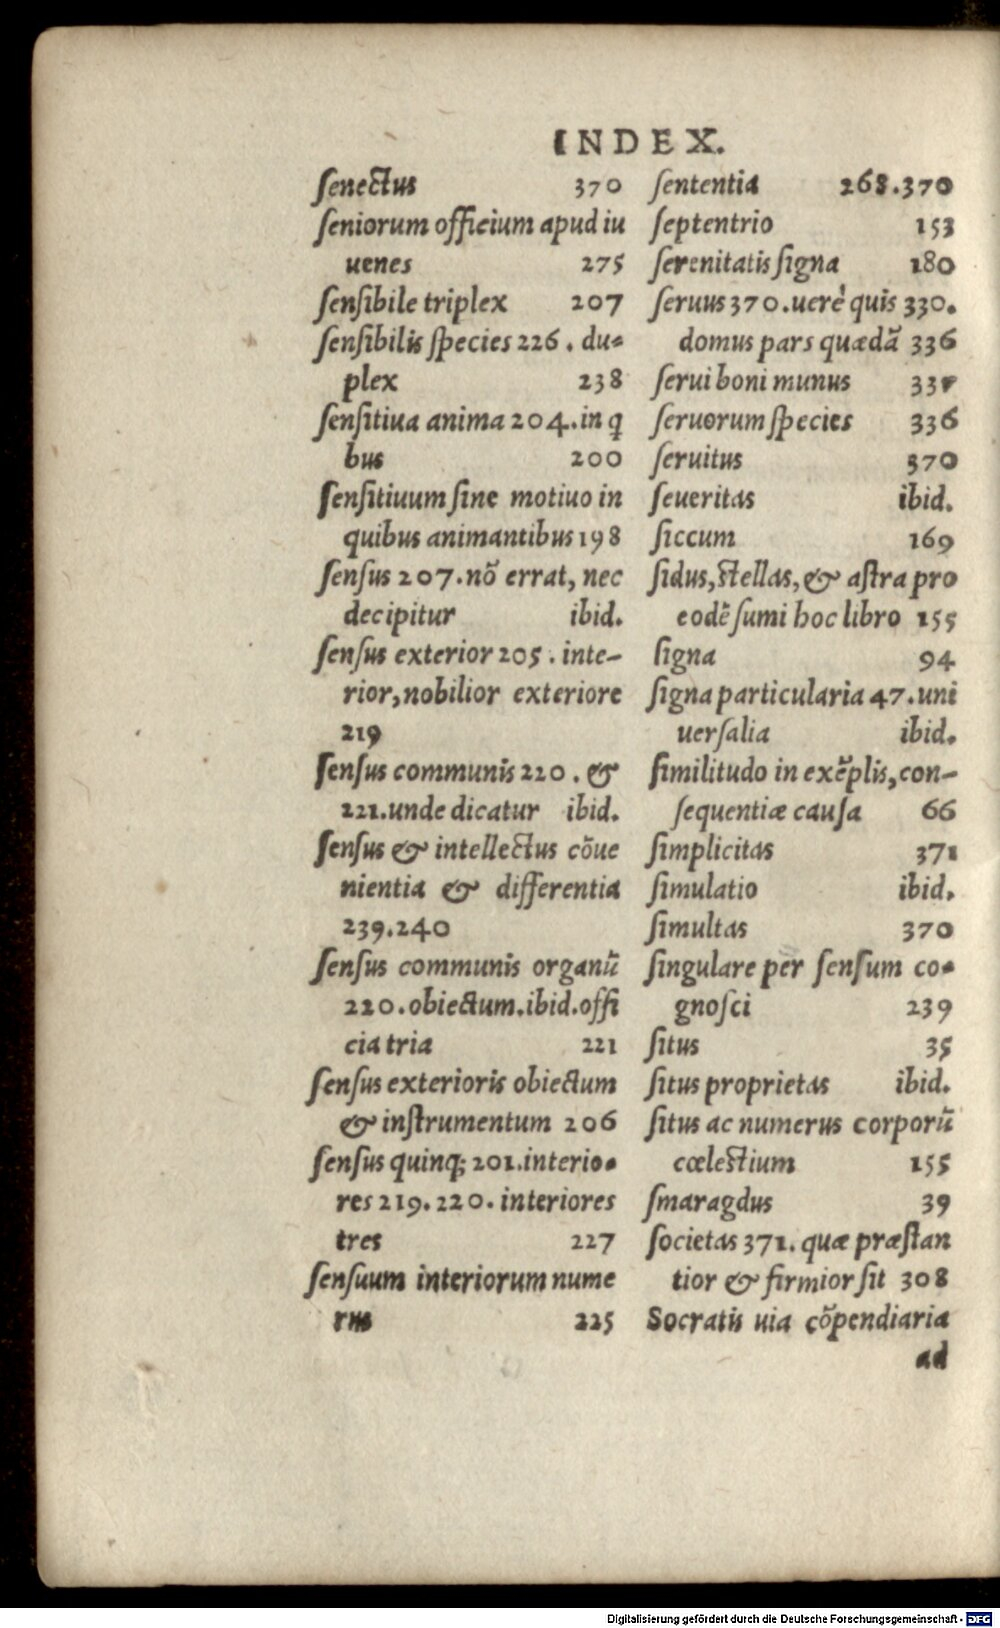 INDEX.
senectus 370
seniorum officium apud iu
uenes 275
sensibile triplex 207
sensibilis species 226. du-
plex 238
sensitiua anima 204. in q
bus 200
sensitiuum sine motiuo in
quibus animantibus 198
sensus 207. nõ errat, nec
decipitur ibid.
sensus exterior 205. inte-
rior, nobilior exteriore
219
sensus communis 220. &
221. unde dicatur ibid.
sensus & intellectus cõue
nientia & differentia
239.240
sensus communis organũ
220. obiectum. ibid. offi
cia tria 221
sensus exterioris obiectum
& instrumentum 206
sensus quinq; 201. interio-
res 219. 220. interiores
tres 227
sensuum interiorum nume
rus 225
sententia 268.370
septentrio 153
serenitatis signa 180
seruus 370. uerè quis 330.
domus pars quædã 336
serui boni munus 337
seruorum species 336
seruitus 370
seueritas ibid.
siccum 169
sidus, stellas, & astra pro
eodẽ sumi hoc libro 155
signa 94
signa particularia 47. uni
uersalia ibid.
similitudo in exẽplis, con-
sequentiæ causa 66
simplicitas 371
simulatio ibid.
simultas 370
singulare per sensum co-
gnosci 239
situs 35
situs proprietas ibid.
situs ac numerus corporũ
cœlestium 155
smaragdus 39
societas 371. quæ præstan
tior & firmior sit 308
Socratis uia cõpendiaria
ad
Digitalisierung gefördert durch die Deutsche Forschungsgemeinschaft - DFG